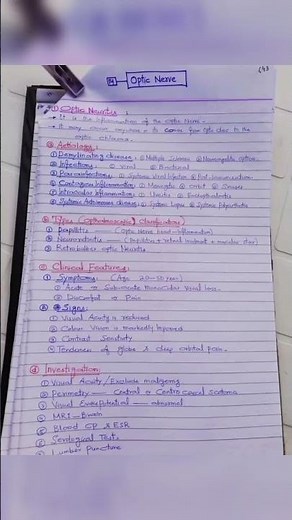 Optic Nerve
① Optic Neuritis :
→ It is the inflammation of the optic Nerve.
→ It may occur anywhere in its course from disc to the
optic chiasma.
ⓐ Aetiology :
① Demylinating diseases: ① Multiple Sclerosis ② Neuromyelitis optica.
② Infections : ① Viral ② Bacterial
③ Parainfectious : ① Systemic Viral Infection ② Post-immunization
④ Contiguous Inflammation : ① Meninges ② orbit ③ Sinuses
⑤ Intraocular inflammation : ① Uveitis ② Endophthalmitis
⑥ Systemic Autoimmune diseases : ① System Lupus ② Systemic
ⓑ Types (Opthalmoscopic) Classification)
① papillitis — (Optic Nerve head inflammation)
② Neuroretinitis — (papillitis + retinal involment + macular star)
③ Retrobulbar optic Neuritis
ⓒ Clinical Features :
① Symptoms : (Age 20-50 years)
① Acute → Subacute monocular Visual loss.
② Discomfort → Pain
② Signs :
① Visual Acuity is reduced
② Colour Vision is markedly Impaired
③ Contrast Senstivity
④ Tenderness of globe & deep orbital pain.
ⓓ Investigation :
① Visual Acuity / Exclude
② Perimetry — Central & Centro cecal scotoma
③ Visual Evoked Potential — abnormal
④ MRI - Brain
⑤ Blood CP & ESR
⑥ Serological Tests
⑦ Lumbar Puncture